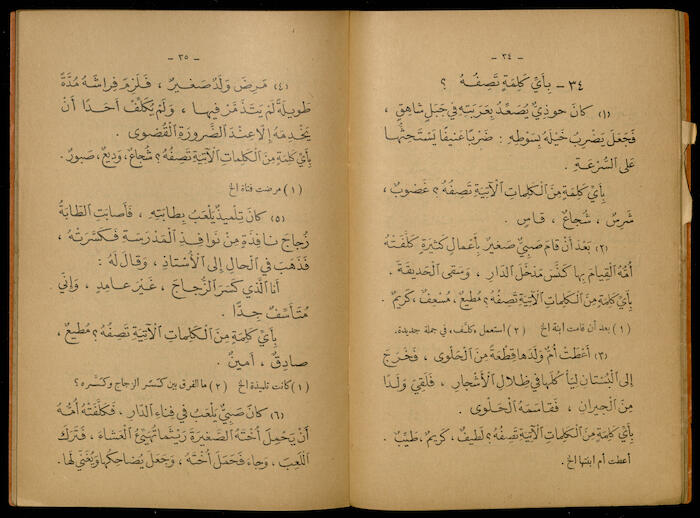 - ٣٤ -
٣٤ - بِأَيِّ كَلِمَةٍ تَصِفُهُ ؟
(١) كَانَ حُوذِيٌّ يُصَعِّدُ بِعَرَبَتِهِ فِي جَبَلٍ شَاهِقٍ ،
فَجَعَلَ يَضْرِبُ خَيْلَهُ بِسَوْطِهِ : ضَرْبًا عَنِيفًا يَسْتَحِثُّهَا
عَلَى السُّرْعَةِ .
بِأَيِّ كَلِمَةٍ مِنَ الْكَلِمَاتِ الْآتِيَةِ تَصِفُهُ ؟ غَضُوبٌ ،
شَرِسٌ ، شُجَاعٌ ، قَاسٍ .
(٢) بَعْدَ أَنْ قَامَ صَبِيٌّ صَغِيرٌ بِأَعْمَالٍ كَثِيرَةٍ كَلَّفَتْهُ
أُمُّهُ الْقِيَامَ بِهَا كَنَسَ مَدْخَلَ الدَّارِ ، وَسَقَى الْحَدِيقَةَ .
بِأَيِّ كَلِمَةٍ مِنَ الْكَلِمَاتِ الْآتِيَةِ تَصِفُهُ ؟ مُطِيعٌ ، مُسْعِفٌ ، كَرِيمٌ .
(١) بعد أن قامت ابنة الخ (٢) استعمل «كلّف» في جملة جديدة.
(٣) أَعْطَتْ أُمٌّ وَلَدَهَا قِطْعَةً مِنَ الْحَلْوَى ، فَخَرَجَ
إِلَى الْبُسْتَانِ لِيَأْكُلَهَا فِي ظِلَالِ الْأَشْجَارِ ، فَلَقِيَ وَلَدًا
مِنَ الْجِيرَانِ ، فَقَاسَمَهُ الْحَلْوَى .
بِأَيِّ كَلِمَةٍ مِنَ الْكَلِمَاتِ الْآتِيَةِ تَصِفُهُ ؟ لَطِيفٌ ، كَرِيمٌ ، طَيِّبٌ .
أعطت أم ابنتها الخ .
- ٣٥ -
(٤) مَرِضَ وَلَدٌ صَغِيرٌ ، فَلَزِمَ فِرَاشَهُ مُدَّةً
طَوِيلَةً لَمْ يَتَذَمَّرْ فِيهَا ، وَلَمْ يُكَلِّفْ أَحَدًا أَنْ
يَخْدِمَهُ إِلَّا عِنْدَ الضَّرُورَةِ الْقُصْوَى .
بِأَيِّ كَلِمَةٍ مِنَ الْكَلِمَاتِ الْآتِيَةِ تَصِفُهُ ؟ شُجَاعٌ ، وَدِيعٌ ، صَبُورٌ .
(١) مرضت فتاة الخ
(٥) كَانَ تِلْمِيذٌ يَلْعَبُ بِطَابَتِهِ ، فَأَصَابَتِ الطَّابَةُ
زُجَاجَ نَافِذَةٍ مِنْ نَوَافِذِ الْمَدْرَسَةِ فَكَسَرَتْهُ ،
فَذَهَبَ فِي الْحَالِ إِلَى الْأُسْتَاذِ ، وَقَالَ لَهُ :
أَنَا الَّذِي كَسَرَ الزُّجَاجَ ، غَيْرَ عَامِدٍ ، وَإِنِّي
مُتَأَسِّفٌ جِدًّا .
بِأَيِّ كَلِمَةٍ مِنَ الْكَلِمَاتِ الْآتِيَةِ تَصِفُهُ ؟ مُطِيعٌ ،
صَادِقٌ ، أَمِينٌ .
(١) كانت تلميذة الخ (٢) ما الفرق بين كَسَر الزجاج وكسَّره ؟
(٦) كَانَ صَبِيٌّ يَلْعَبُ فِي فِنَاءِ الدَّارِ ، فَكَلَّفَتْهُ أُمُّهُ
أَنْ يَحْمِلَ أُخْتَهُ الصَّغِيرَةَ رَيْثَمَا تُهَيِّئُ الْعَشَاءَ ، فَتَرَكَ
اللَّعِبَ ، وَجَاءَ فَحَمَلَ أُخْتَهُ ، وَجَعَلَ يُضَاحِكُهَا وَيُغَنِّي لَهَا .